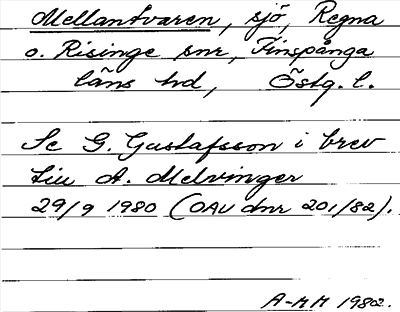 Mellantvaren, sjö, Regna
o. Risinge snr, Finspånga
läns hd, Östg. l.
Se G. Gustafsson i brev
till A. Melvinger
29/9 1980 (OAU dnr 201/82).
A-M H 1982.